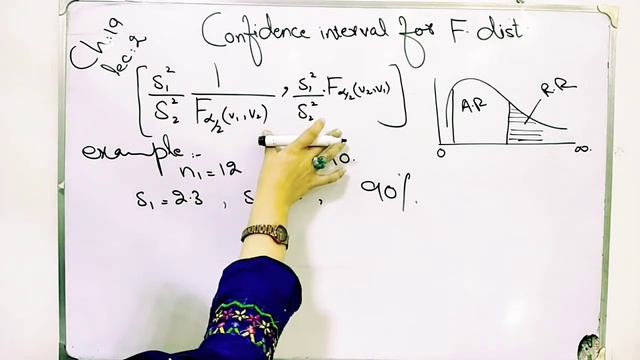 Ch:19
Lec:2
Confidence interval for F. dist
[ S₁²/S₂² 1/F_{α/2}(v₁,v₂) , S₁²/S₂² · F_{α/2}(v₂,v₁) ]
A.R
R.R
0
∞
example:-
n₁=12
10.
S₁=2.3 , S , 90%.